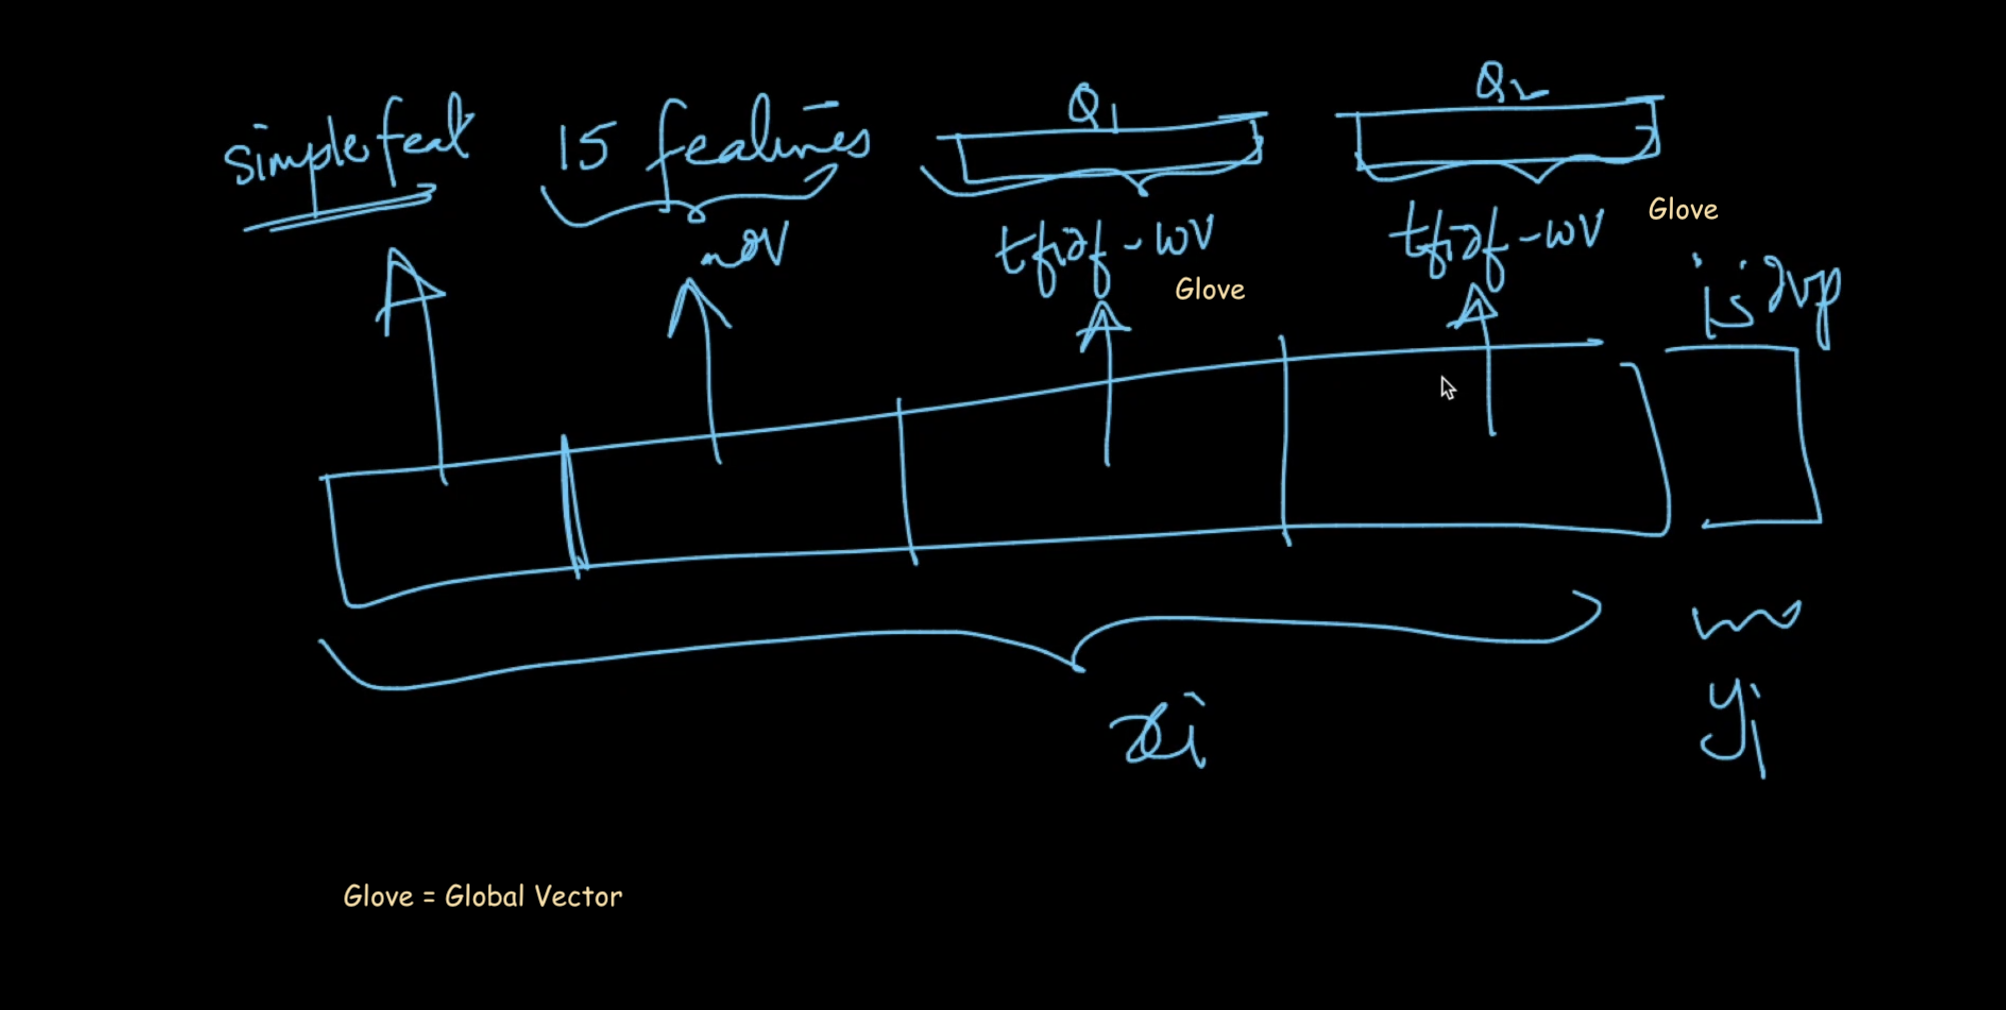 simple feat 15 features Q1 Q2
nov tfidf-wv Glove tfidf-wv Glove
is dup
xi yi
Glove = Global Vector